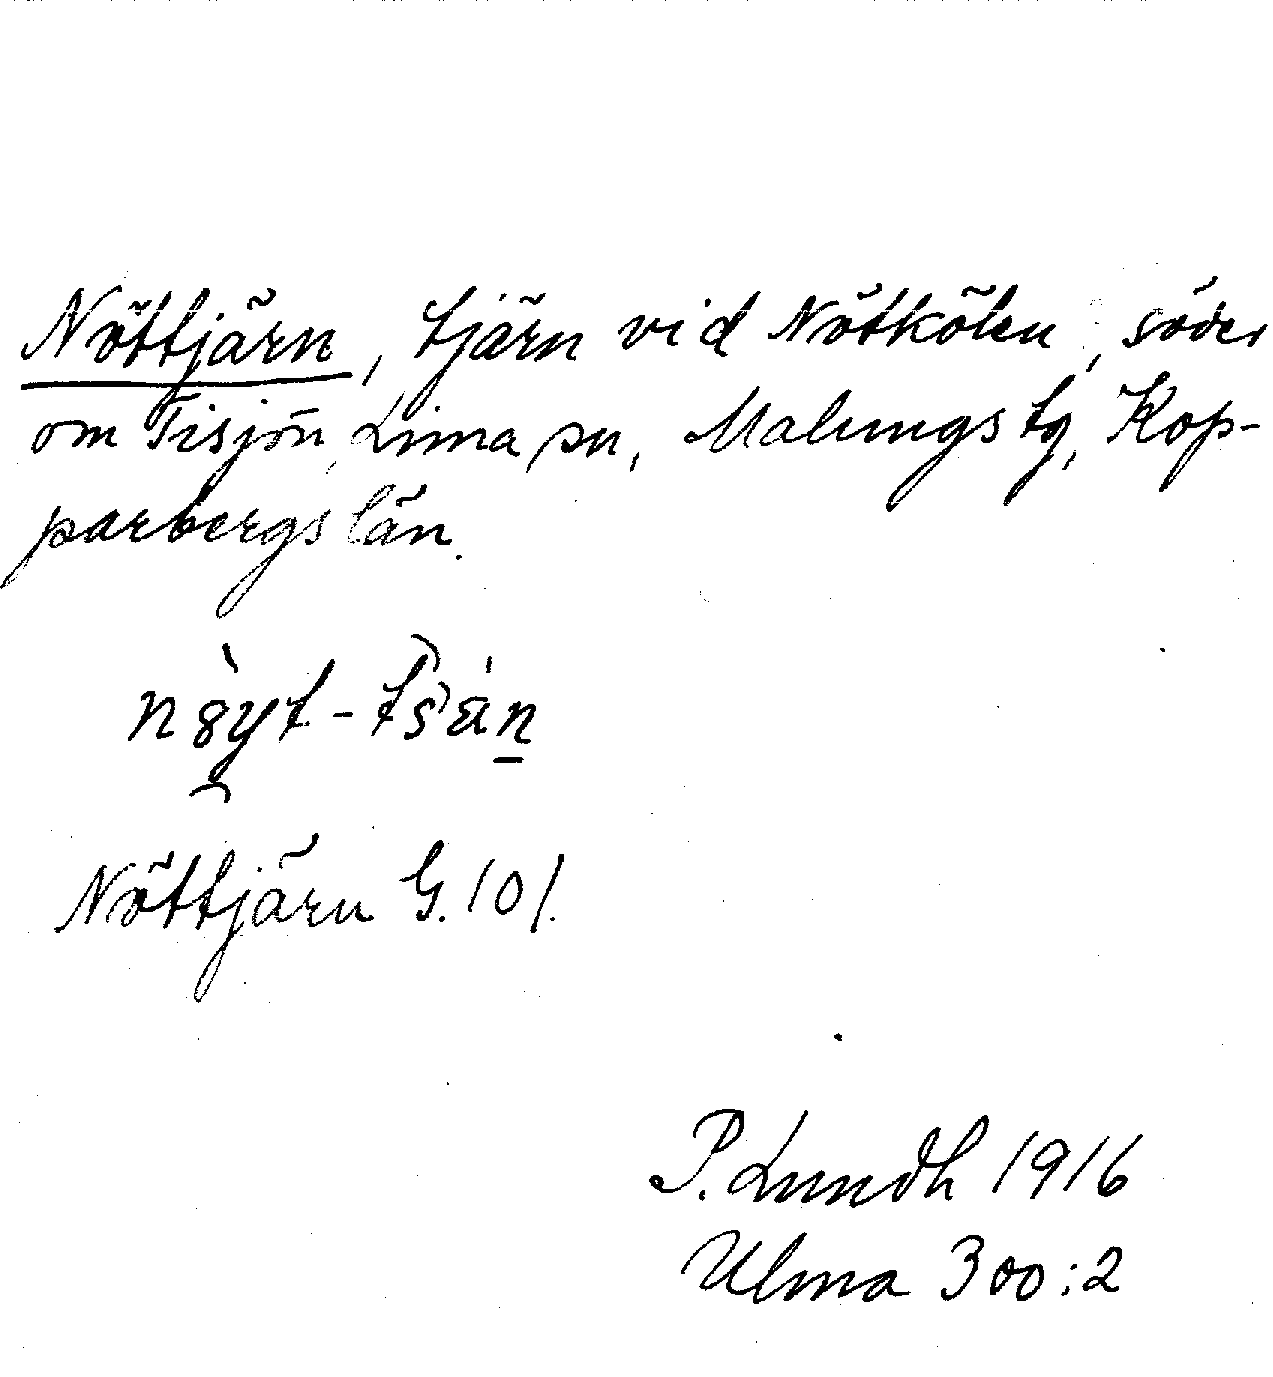 Nöttjärn, tjärn vid Nötkölen, söder
om Tisjön, Lima sn, Malungs tg, Kop-
parbergs län.
Nöttjärn G. 101.
P. Lundh 1916
Ulma 300:2